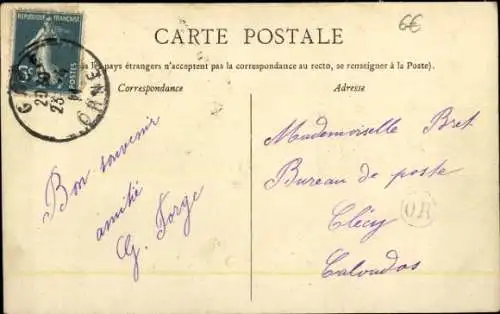 REPUBLIQUE FRANÇAISE
POSTES
ORNE
6€
CARTE POSTALE
pays étrangers n'acceptent pas la correspondance au recto, se renseigner à la Poste).
Correspondance
Adresse
Bon souvenir
amitié
G. Forge
Mademoiselle Bret
Bureau de poste
Clécy
Calvados
OR